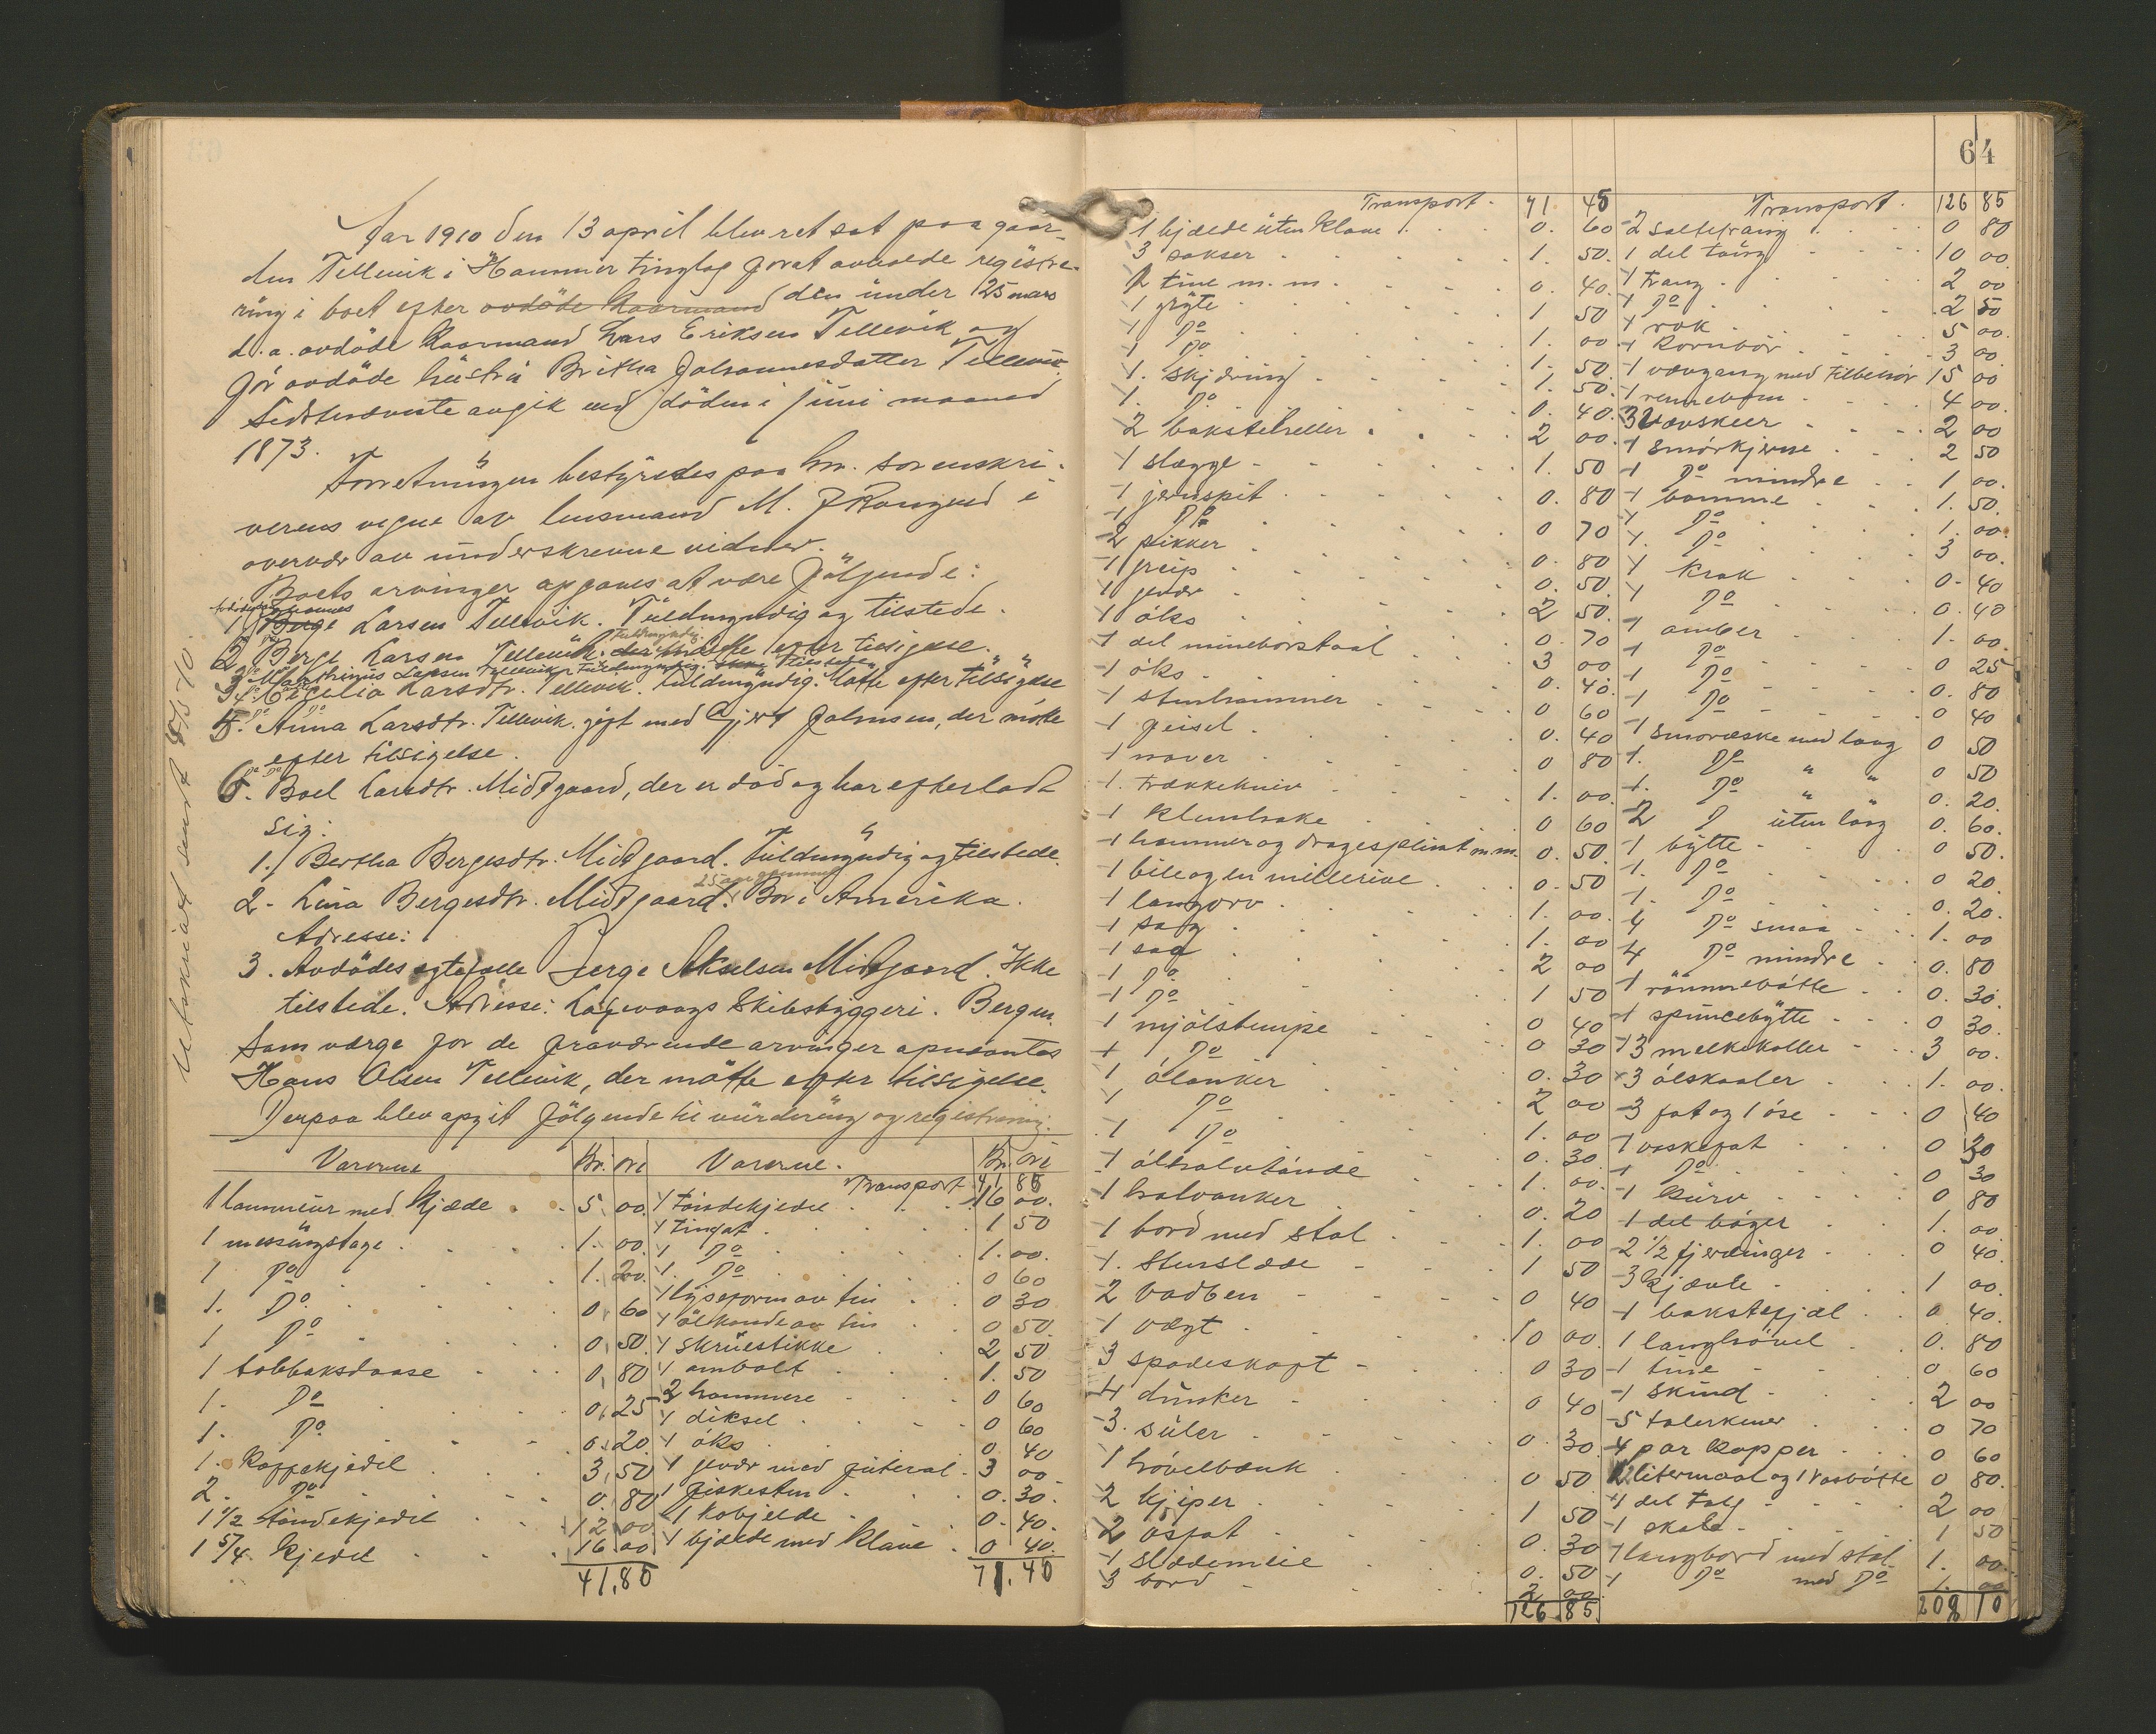 Aar 1910 den 13 april blev ret sat paa gaar-
den Tellevik i Hammer tinglag for at avholde registre-
ring i boet efter avdöde Kaarmand den under 25 mars
d.a. avdöde Kaarmand Lars Eriksen Tellevik og
för avdöde hustru Britha Johannesdatter Tellevik.
Sidstnævnte avgik ved döden i juni maaned
1873.
Forretningen bestyredes paa hr. sorenskri-
verens vegne av lensmand M. J Rongved i
overvær av underskrevne vidner.
Boets arvinger opgaves at være fölgende:
1 Johannes Larsen Tellevik. Fuldmyndig og tilstede.
2 Berge Larsen Tellevik. Fuldmyndig. der mötte efter tilsigelse.
3 Mathinus Larsen Tellevik. Fuldmyndig. Ikke tilstede
4. Cecilia Larsdtr. Tellevik. Fuldmyndig. Mötte efter tilsigelse
5. Anna Larsdtr. Tellevik gift med Gjert Johnsen, der mötte
efter tilsigelse.
6. Boel Larsdtr. Midtgaard, der er död og har efterladt
sig:
1. Bertha Bergesdtr. Midtgaard. Fuldmyndig og tilstede.
25 aar gammel
2. Lina Bergesdtr. Midtgaard. Bor i Amerika.
Adresse:
3. Avdödes egtefælle Berge Akselsen Midtgaard. Ikke
tilstede. Adresse: Laxevaags Skibsbyggeri. Bergen.
Som værge for de fraværende arvinger opnævntes
Hans Olsen Tellevik, der mötte efter tilsigelse.
Derpaa blev opgit fölgende til vurdering og registrering.
Varerne Kr. öre
1 kammeur med kjæde 5,00
1 messingstage 1.00
1 Do 1.20
1. Do 0,60
1 Do 0,50
1 tobbaksdaase 0,80
1. Do 0,25
1. Do 0.20
1. Kaffekjedel 3,50
2. Do 0,80
1 1/2 töndekjedel 12,00
1 5/4 kjedel 16,00
41,85
Varerne. Kr. öre
Transport 41 85
1 töndekjedel 16 00.
1 tinfat 1 50
1 Do 1.00.
1. Do 0 60
1 lyseform av tin 0 30
1 ölkande av tin 0 50.
1 skruestikke 2 50
1 ambolt 1. 50
2 hammere 0 60
1 diksel 0 60
1 öks 0 40
1 gevær med futeral 3 00
1 fiskesten 0.30.
1 kobjelde 0.40.
1 bjelde med klave 0 40.
71.40
64
Transport 71. 45
1 bjelde uten klave 0. 60
3 sakser 1. 50.
1 tine m.m. 0. 40.
1 gryte 1 50
1 Do 1. 00
1 Do 1. 50.
1. skjæring 1. 50.
1. Do 0. 40.
2 baksteheller 2 00.
1 slægge 1. 50
1 jernspit 0. 80
1 Do 0 70
2 pikker 0. 80
1 greip 0. 50.
1 gevær 2 50.
1 öks 0. 70
1 del minebörstaal 3 00
1 öks 0. 40.
1 stenhammer 0 60
1 feisel 0. 40
1 naver 0 80
1. trækkekniv 1. 00.
1 klembake 0 60
1 hammer og dragesplint m.m. 0. 50.
1 bile og en 0. 50
1 langorv 1. 00.
1 sag 1. 00
1 sag 2 00
1 Do 1 50
1 Do 0 40
1 mjölstempe 0 30
1 Do 0. 30
1 ölanker 2 00
1 Do 1. 00
1 Do 0. 30.
1 ölhalvtönde 1. 00.
1 halvanker 0. 20
1 bord med stol 1. 00
1. Stenslæde 1 50
2 vadben 0 40
1 vægt 10 00.
3 spadeskaft 0 30
4 dunker 0 40
3. siler 0. 30.
1 hövelbænk 0 50
2 kjiper 1 50
2 osfat 0. 30
1 slædemeie 0. 50
3 bord 2 00
126.85.
Transport. 126 85
2 saltetraug 0 80
1 del töug 10 00
1 traug 2 00
1 Do 2 50
1 rok 5 00.
1 kornbör 3 00
1 vævgang med tilbehör 15 00
1 rennebom 4 00.
3 vævskeer 2 00
1 smörkjerne 2 50
1 Do mindre 1 00.
1 bomme 1. 50.
1 Do 1. 00.
1. Do 3 00.
1 krak 0. 40
1 Do 0. 40
1 amber 1. 00.
1 Do 0 25
1 Do 0. 80
1 Do 0 40
1 smöræske med laag 0 50
1. Do " " 0 50
1. Do " " 0. 20.
2 D uten laag 0. 60.
1 bytte 0 50.
1. Do 0 20
1. Do 0. 20.
4 Do smaa 1. 00
4 Do mindre 0. 80
1 römmebötte 0. 30.
1 spincebytte 0 30.
13 melkekoller 3 00.
3 ölskaaler 1. 00.
3 fat og 1 öse 0 40
1 vaskefat 0 30
1 Do 0 30
1 kurv 0 80
1 del böger 1. 00
2 1/2 fjerdinger 0 40.
3 kjævle 1 00.
1 bakstefjæl 0. 40.
1 langhövel 0. 80
1 tine 0 60
1 skind 2 00
5 talerkener 0 70
4 par kopper 0 60
2 litermaal og 1 vasbötte 0 80.
1 del talg 2 00
1 skabe 1 50
1 langbord med stol 1. 00.
1 Do med Do 1. 00
208 10